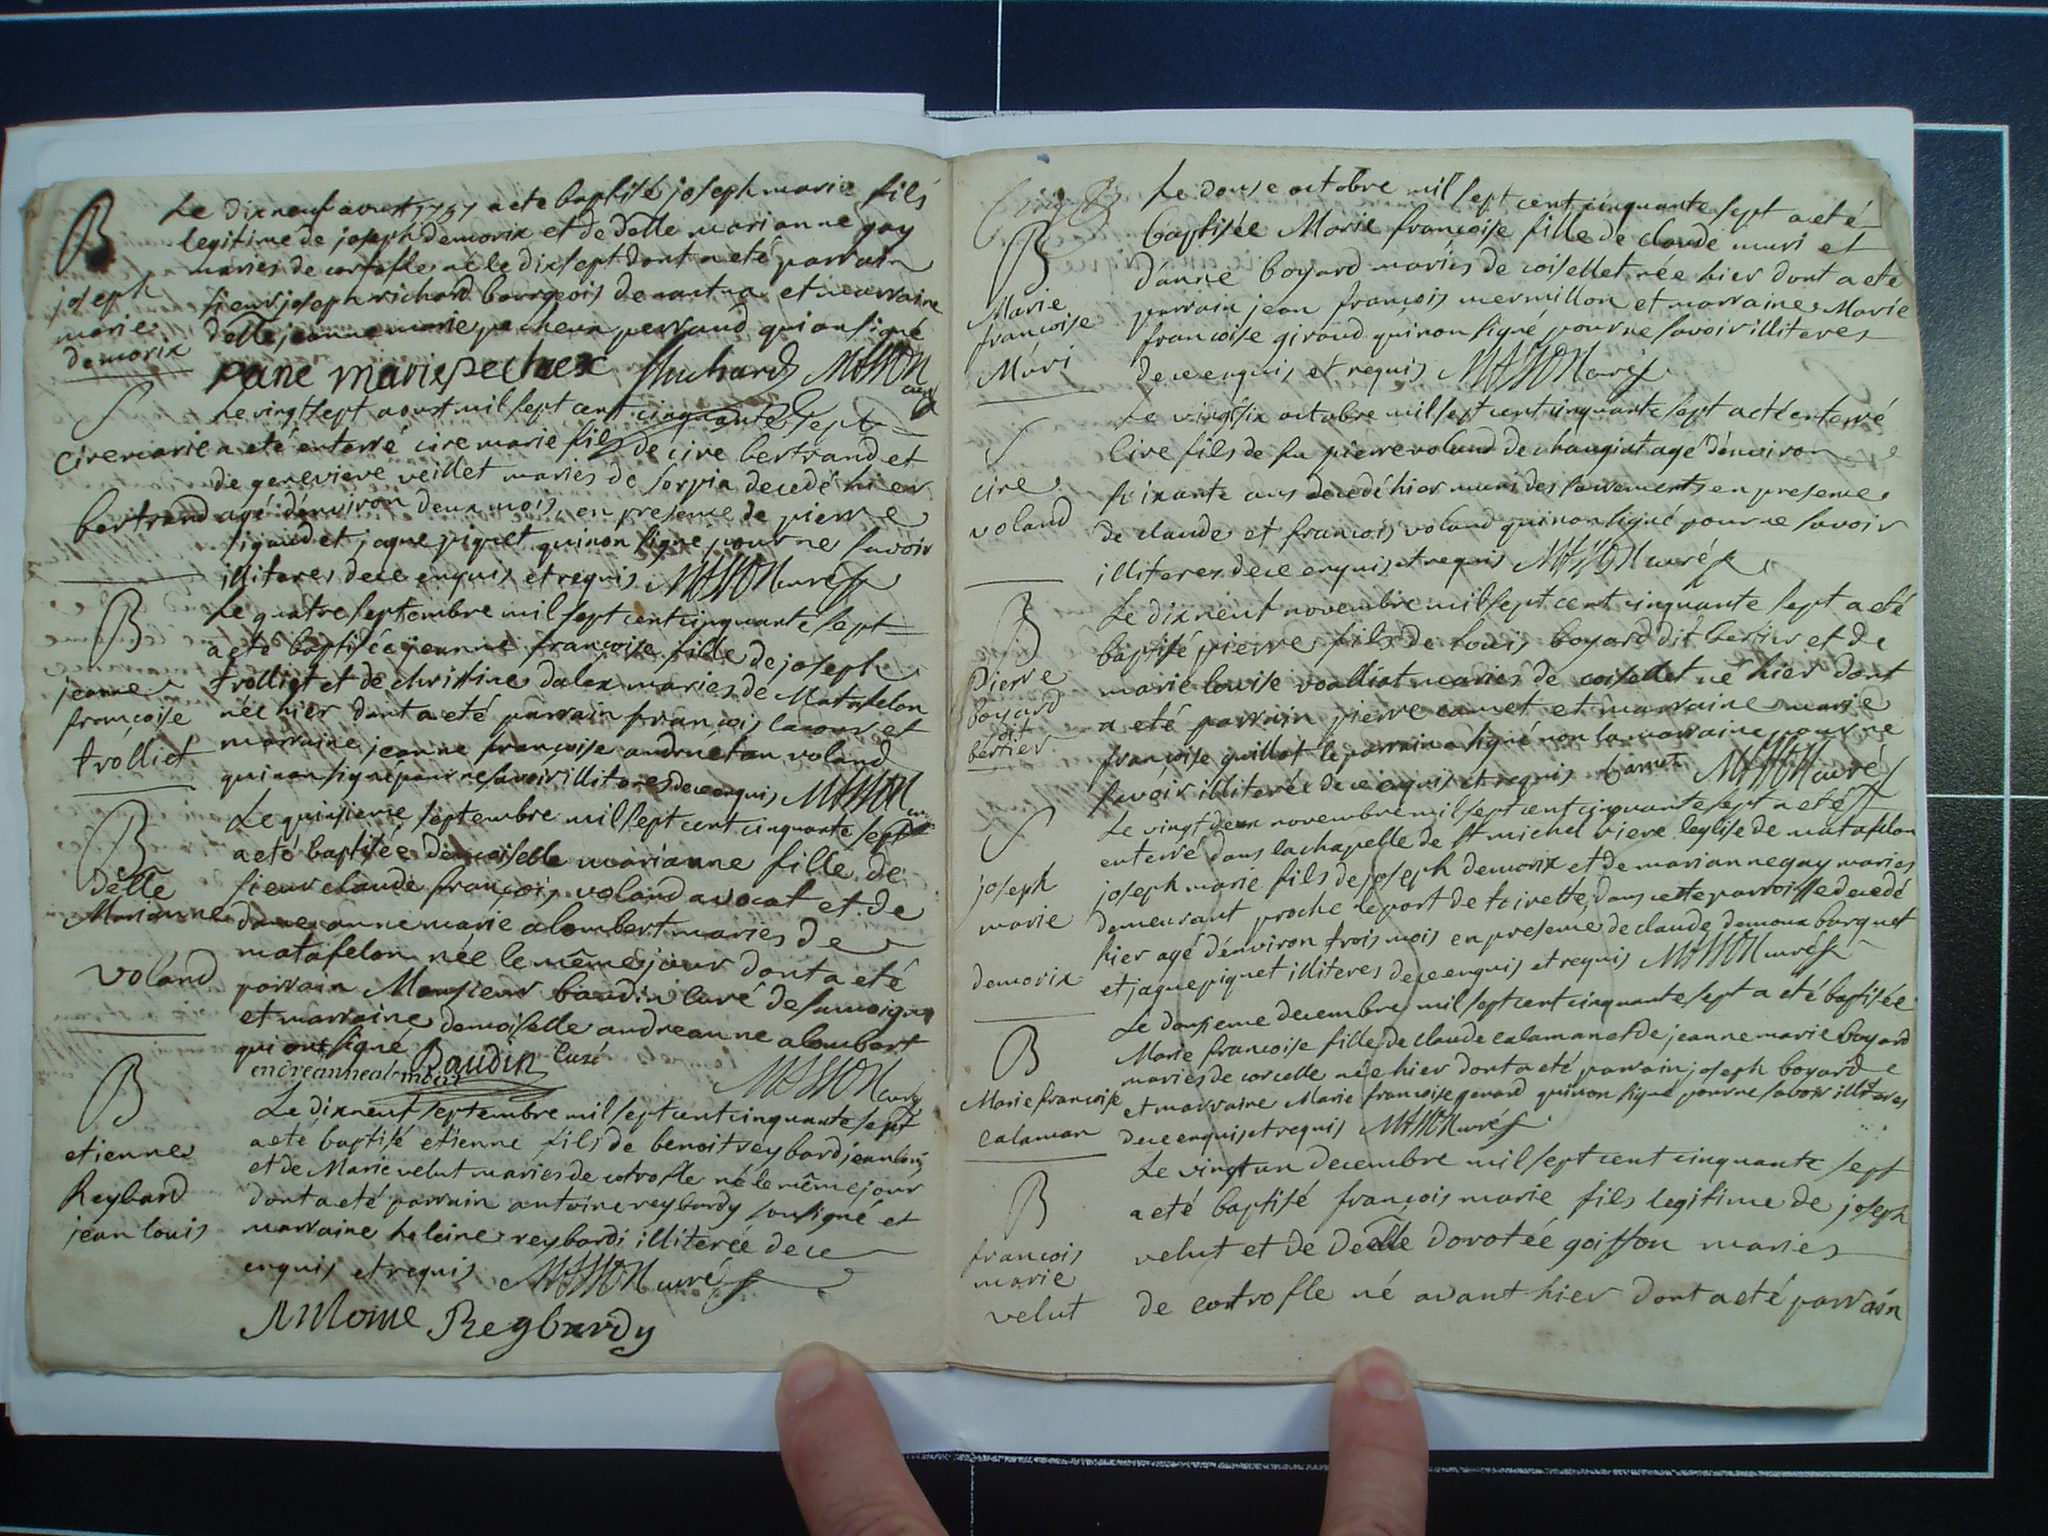 B
joseph
marie
demorix
Le dixneuf aoust 1757 a ete baptisé joseph marie fils
legitime de joseph demorix et de delle marianne gay
mariés de cortofle né le dixsept dont a eté parrain
sieur joseph richard bourgeois de nantua et marraine
delle jeanne marie pecheux perraud qui on signé
marie pecheex Richard MASSON curé
S
cire marie
bertrand
Le vingtsept aoust mil sept cent cinquante sept
a eté enterré cire marie fils de cire bertrand et
de genevieve veillet mariés de sorpia decedé hier
agé d'environ deux mois, en presence de pierre
sigaud et jaque piquet qui non signé pour ne savoir
illiteres de ce enquis et requis MASSON curé
B
jeanne
françoise
trolliet
Le quatre septembre mil sept cent cinquante sept
a eté baptisée jeanne françoise fille de joseph
trolliet et de christine dalex mariés de Matafelon
née hier dont a eté parrain françois lacour et
marraine jeanne françoise andruetan voland
qui non signé pour ne savoir illiteres de ce enquis MASSON curé
B
delle
Marianne
voland
Le quinsieme septembre mil sept cent cinquante sept
a eté baptisée demoiselle marianne fille de
sieur claude françois voland avocat et de
dame anne marie alombert mariés de
matafelon née le même jour dont a eté
parrain Monsieur baudin curé de samoigna
et marraine demoiselle andreanne alombert
qui ont signé Baudin Curé
endreanne alombert MASSON curé
B
etienne
Reybard
jean louis
Le dixneuf septembre mil sept cent cinquante sept
a eté baptisé etienne fils de benoit reybard jean louis
et de Marie velut mariés de cotrofle né le même jour
dont a eté parrain antoine reybardy sousigné et
marraine heleine reybardi illiterée de ce
enquis et requis MASSON curé
Antoine Reybardy
Le douse octobre mil sept cent cinquante sept a eté
B
Marie
françoise
Muri
baptisée Marie françoise fille de claude muri et
d'anne boyard mariés de coisellet née hier dont a eté
parrain jean françois mermillon et marraine Marie
françoise giraud qui non signé pour ne savoir illiteres
de ce enquis et requis MASSON curé
S
cire
voland
Le vingtsix octobre mil sept cent cinquante sept a eté enterré
Cire fils de fu pierre voland de changiat agé d'environ
soixante ans decedé hier muni des sacrements en presence
de claude et françois voland qui non signé pour ne savoir
illiteres de ce enquis et requis MASSON curé
B
Pierre
boyard
dit
bertier
Le dixneuf novembre mil sept cent cinquante sept a eté
baptisé pierre fils de louis boyard dit bertier et de
marie louise voalliat mariés de coisellet né hier dont
a eté parrain pierre carnet et marraine marie
françoise guillot le parrain a signé non la marraine pour ne
savoir illiterée de ce enquis et requis Carnet MASSON curé
S
joseph
marie
demorix
Le vingt deux novembre mil sept cent cinquante sept a eté
enterré dans la chapelle de st michel riere leglise de matafelon
joseph marie fils de joseph demorix et de marianne gay mariés
demeurant proche le port de toirette, dans cette parroisse decedé
hier agé d'environ trois mois en presence de claude demoux barquet
et jaque piquet illiteres de ce enquis et requis MASSON curé
B
Marie francoise
calaman
Le dousieme decembre mil sept cent cinquante sept a eté baptisée
Marie françoise fille de claude calaman et de jeanne marie boyard
mariés de corcelle née hier dont a eté parrain joseph boyard
et marraine Marie françoise genard qui non signé pour ne savoir illiteres
de ce enquis et requis MASSON curé
B
francois
marie
velut
Le vingt un decembre mil sept cent cinquante sept
a eté baptisé françois marie fils legitime de joseph
velut et de delle dorotée goiffon mariés
de cortrofle né avant hier dont a eté parrain